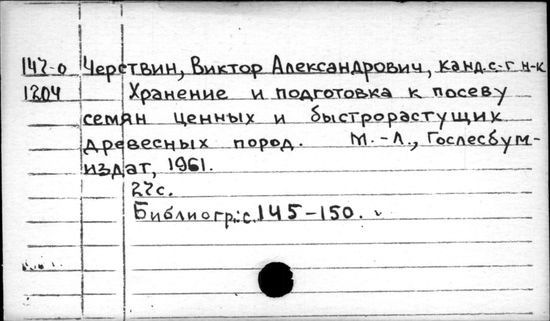 142-0 Черствин, Виктор Александрович, канд. с-г н-к
1204 Хранение и подготовка к посеву
семян ценных и быстрорастущих
древесных пород. М.-Л., Гослесбум-
издат, 1961.
22с.
Библиогр.: с. 145-150.